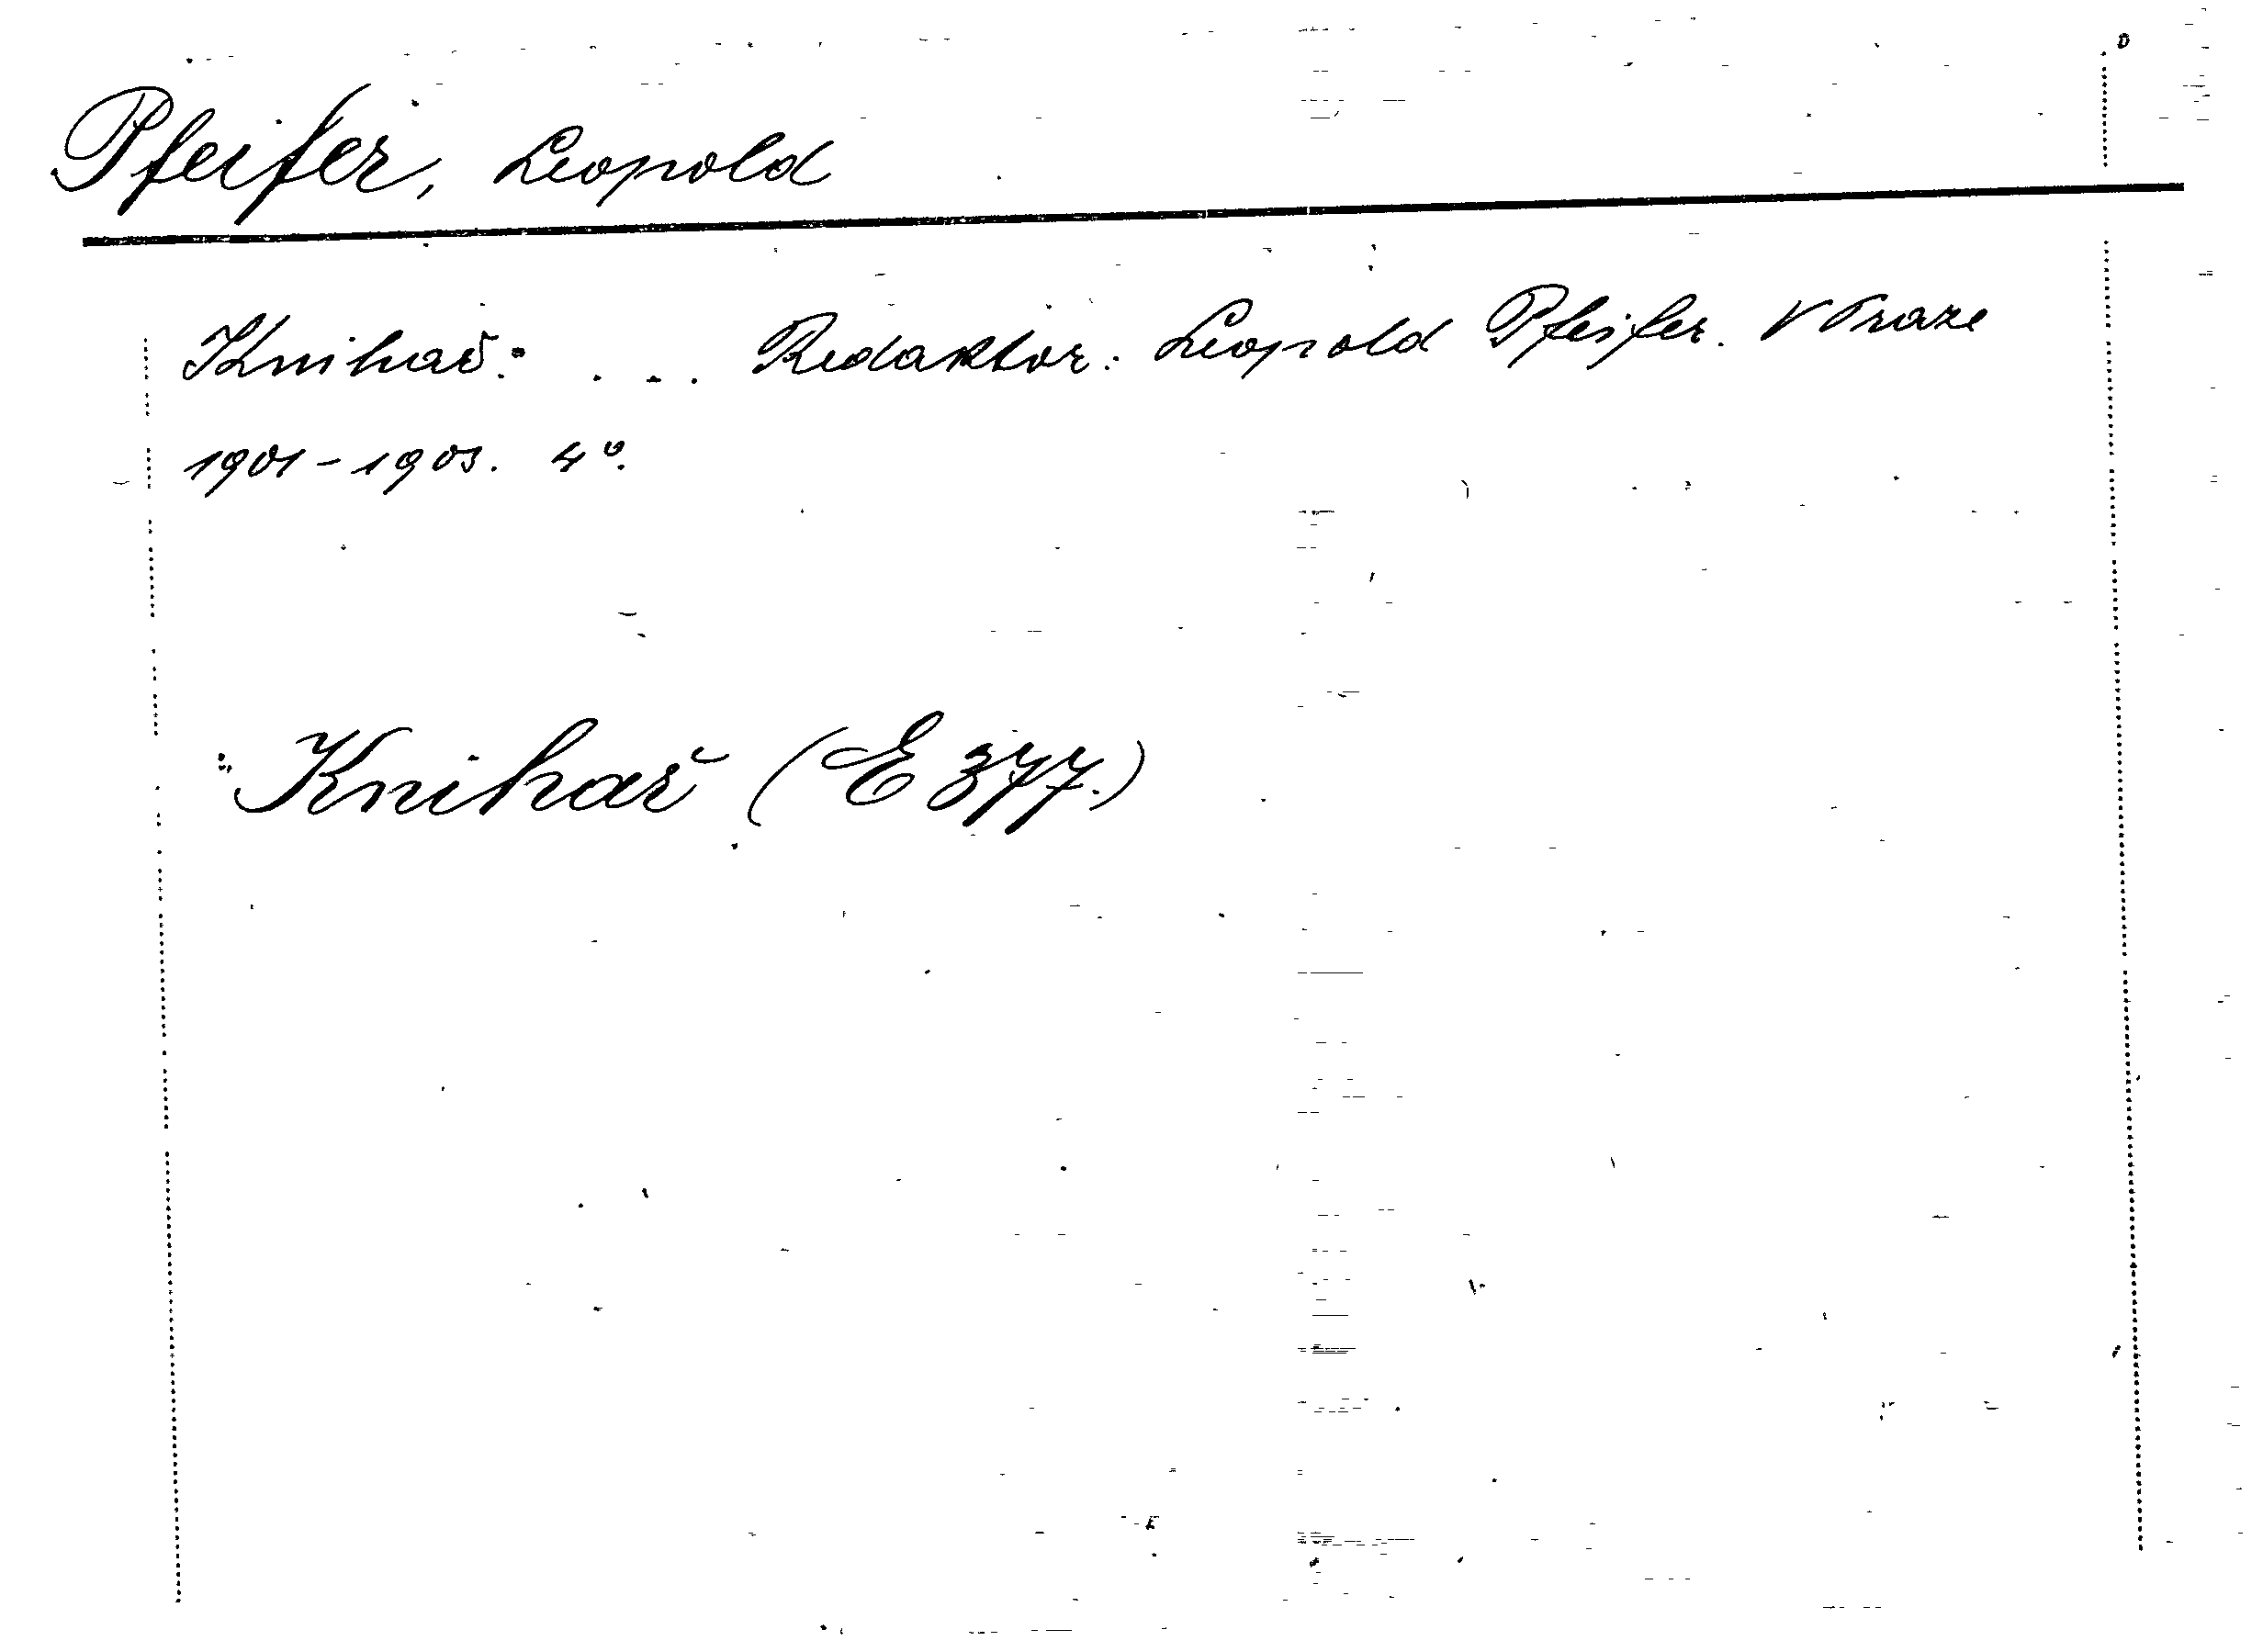 Pfeifer, Leopold
Knihař: ... Redaktor: Leopold Pfeifer. V Praze
1901-1903. 4°.
Knihař (E 377.)